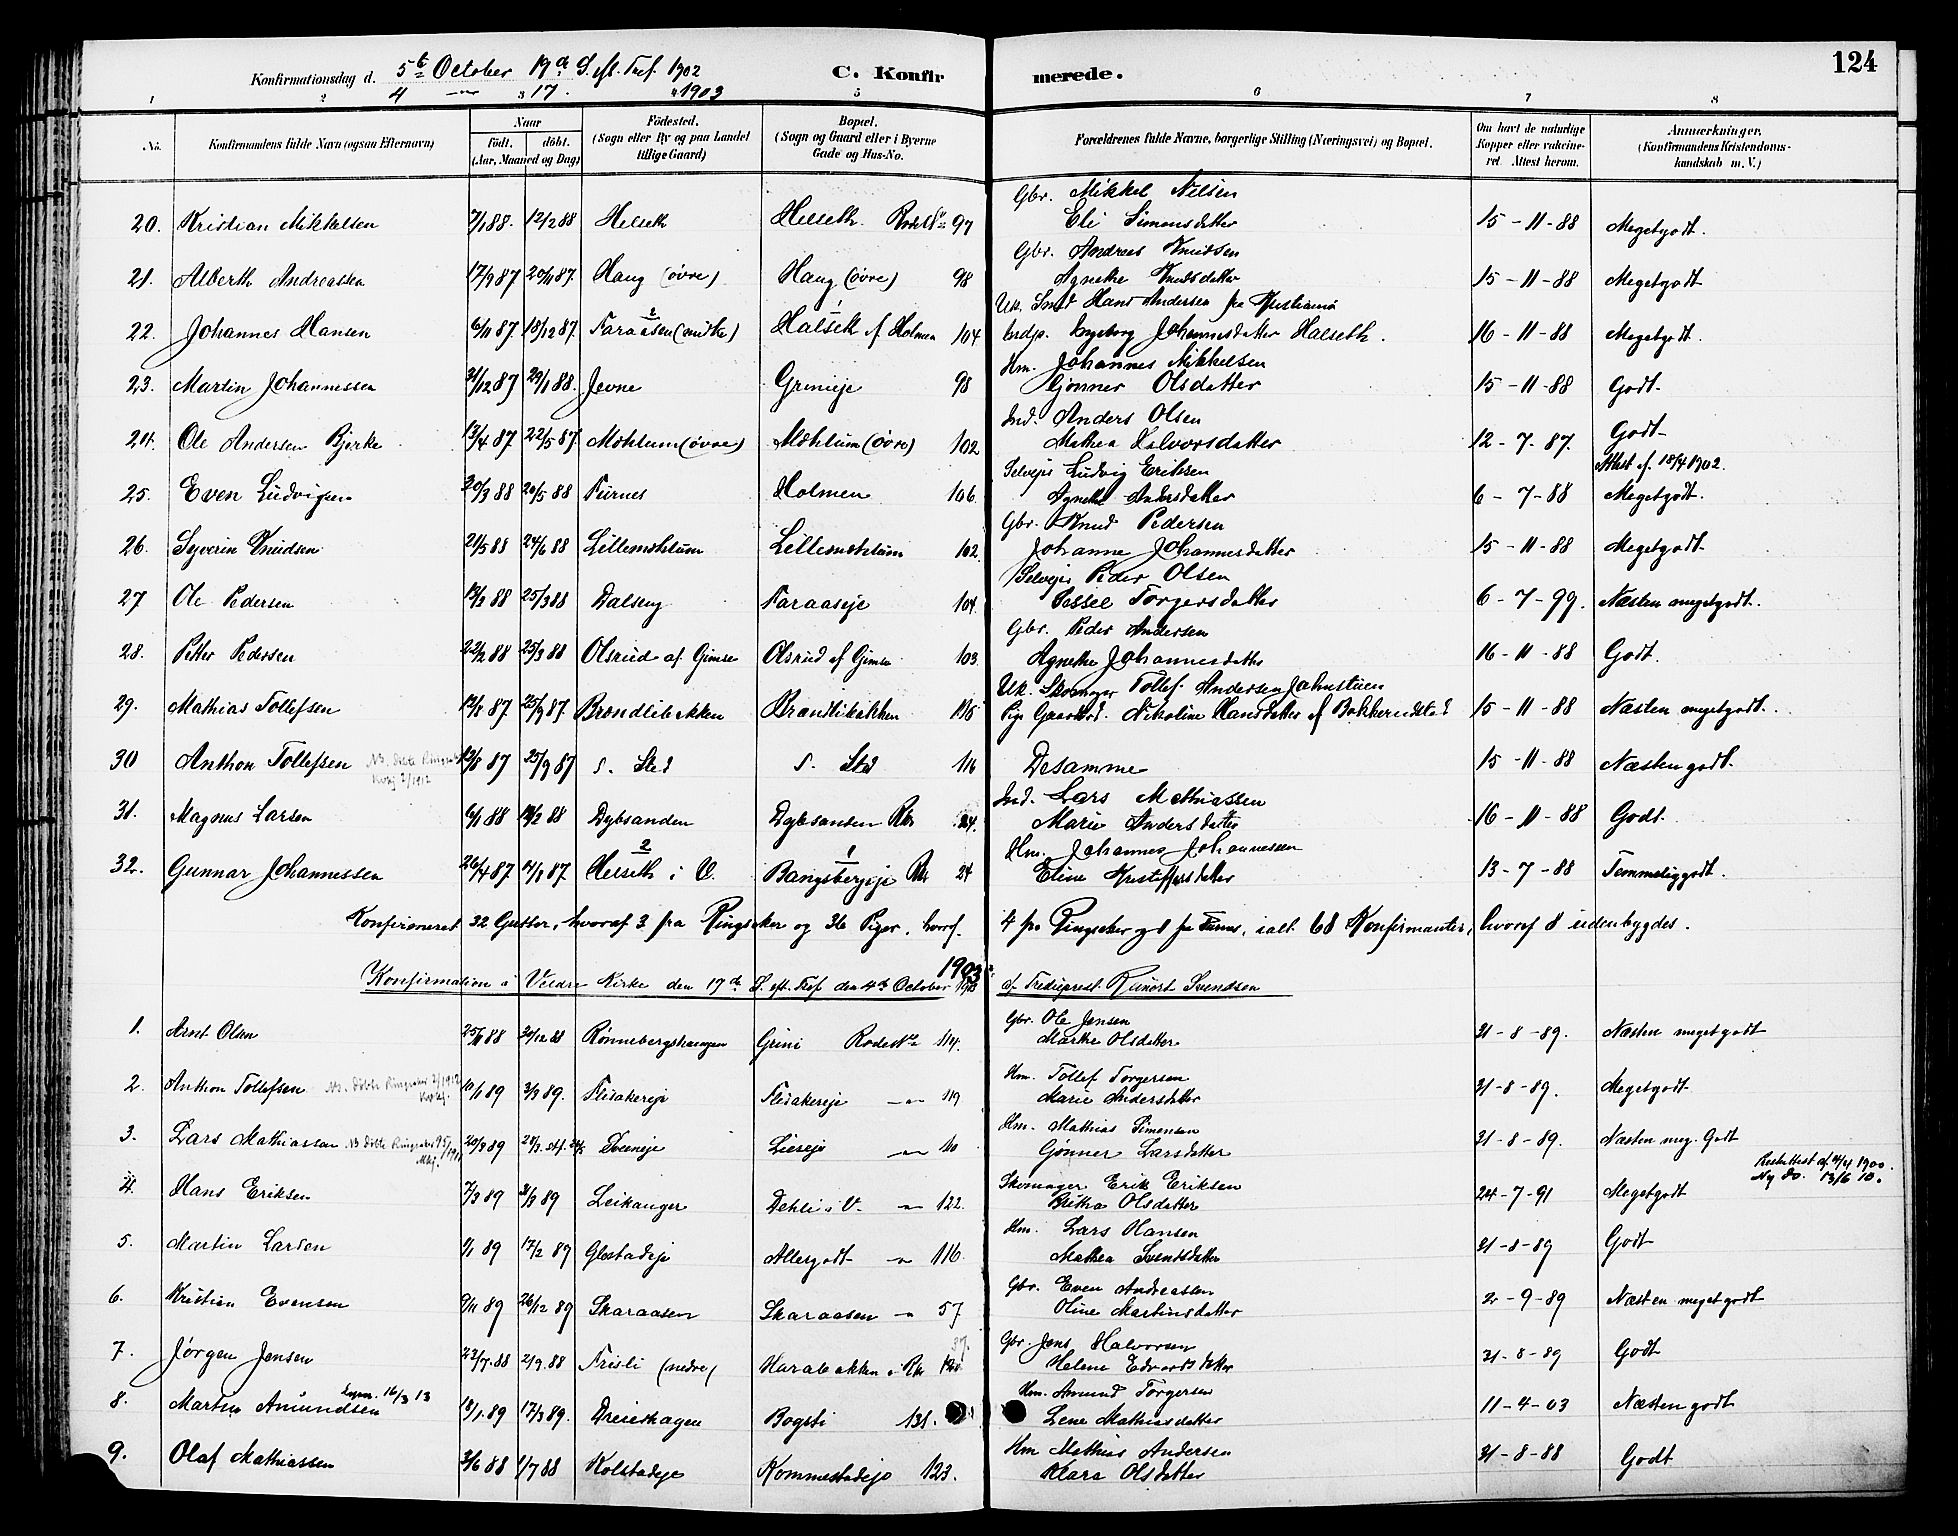 124
Konfirmationsdag d. 5te October 19de S. eft. Tref. 1902
4 — 17. 1903
C. Konfirmerede.
1 2 3 5 6 7 8
No. Konfirmandens fulde Navn (ogsaa Efternavn) Naar födt. döbt. (Aar, Maaned og Dag) Födested. (Sogn eller By og paa Landet tillige Gaard) Bopæl. (Sogn og Gaard eller i Byerne Gade og Hus-No. Forældrenes fulde Navne, borgerlige Stilling (Næringsvei) og Bopæl. Om havt de naturlige Kopper eller vakcineret. Attest herom. Anmærkninger. (Konfirmandens Kristendomskundskab m. V.)
20. Kristian Mikkelsen 7/1 88. 12/2 88 Helseth Helseth. Rode No 97 Gbr. Mikkel Nilsen
Eli Simensdatter 15-11-88 Megetgodt.
21. Alberth Andreassen 17/9 87 20/11 87. Haug (øvre) Haug (øvre) 98 Gbr. Andreas Knudsen
Agnethe Knudsdatter 15-11-88 Megetgodt
22. Johannes Hansen 6/11 87 18/12 87. Faraasen (midtre) Halseth af Holmen 104 Uk. Smed Hans Andersen fra Kristiania
Ingeborg Johannesdatter Halseth. 16-11-88 Megetgodt.
23. Martin Johannessen 31/12 87 29/1 88. Jevne Grinieje 98 Hm. Johannes Mikkelsen
Gjønner Olsdatter 15-11-88 Godt.
24. Ole Andersen Bjerke 13/4 87 22/5 87. Møhlum (øvre) Møhlum (øvre) 102 Ind. Anders Olsen
Mathea Halvorsdatter 12-7-87. Godt
Attest af 18/4 1902.
25. Even Ludvigsen 30/3 88 20/5 88 Furnes Holmen 106. Selvejer Ludvig Eriksen
Agnethe Andersdatter 6-7-88 Megetgodt.
26. Syverin Knudsen 21/5 88 24/6 88 Lillemøhlum Lillemøhlum 102. Gbr. Knud Pedersen
Johanne Johannesdatter 15-11-88 Megetgodt.
27 Ole Pedersen 13/2 88 25/3 88 Dalseng Faraaseje 104. Selvejer Peder Olsen
Sessel Torgersdatter 6-7-99. Næsten megetgodt.
28. Petter Pedersen 22/2 88 25/3 88 Olsrud af Gimse Olsrud af Gimse 103 Gbr. Peder Andersen
Agnethe Johannesdatter 16-11-88 Godt.
29. Mathias Tollefsen 12/8 87 25/9 87. Brøndlibakken Brandlibakken 116 Uk. Skomager Tollef Andersen Jahrestuen
Pige Gaardbr.d. Nikoline Hansdatter af Bakkerudstad 15-11-88 Næsten megetgodt.
30 Anthon Tollefsen 12/8 87 25/9 87 s. Sted s. Sted 116 Desamme 15-11-88 Næsten godt.
31. Magnus Larsen 6/1 88 12/2 88 Dybsanden Dybsanden Rkr 24. Ind. Lars Mathiassen
Marie Andersdatter 16-11-88 Godt.
32. Gunnar Johannessen 26/4 87 14/8 87. Helseth i V. Bangsbergeje Rkr 24 Hm. Johannes Johannessen
Eline Kristoffersdatter 13-7-88 Temmeliggodt.
Konfirmeret 32 Gutter, hvoraf 3 fra Ringsaker og 36 Piger, hvoraf 4 fra Ringsaker og 1 fra Furnes, ialt 68 Konfirmanter, hvoraf 8 udenbygdes.
Konfirmation i Veldre Kirke den 17de S. eft. Tref den 4de October 1903 af Tredieprest Rinort Svendsen
1. Arnt Olsen 25/11 88 30/12 88 Rønnebergshaugen Grini Rode No 114. Gbr. Ole Jensen
Marthe Olsdatter 31-8-89. Næsten megetgodt
2. Anthon Tollefsen 10/1 89 3/3 89. Flisakereje Flisakereje — 119 Hm. Tollef Torgersen
Marie Andersdatter 31-8-89. Megetgodt
3. Lars Mathiassen 20/3 89 Sveeneje Lieseje — 110 Hm. Mathias Simensen
Gønner Larsdatter 31-8-89. Næsten meg. Godt
4. Hans Eriksen 7/2 89 31/3 89 Leikanger Dehli i V. — 122. Skomager Erik Eriksen
Britha Olsdatter 24-7-91 Megetgodt
5. Martin Larsen 9/1 89 17/2 89 Glostadeje Allergodt — 116. Hm. Lars Hansen
Mathea Svendsdatter 31-8-89 Godt
6. Kristian Evensen 9/11 89 26/12 89 Skaraasen Skaraasen — 57 Gbr. Even Andreassen
Oline Martinsdatter 2-9-89 Næsten megetgodt
7. Jørgen Jensen 23/7 88 2/9 88 Frisli (nedre) Harabakken i Rkr Gbr Jens Halvorsen
Helene Edvardsdatter 31-8-89 Godt
8. Martin Amundsen 18/1 89 17/3 89. Dreiehagen Bogsti 131. Hm. Amund Torgersen
Lene Mathiasdatter 11-4-03 Næsten godt
9. Olaf Mathiassen 3/6 88 1/7 88 Kolstadeje Kommestadeje 123. Hm Mathias Andersen
Klara Olsdatter 31-8-88 Godt